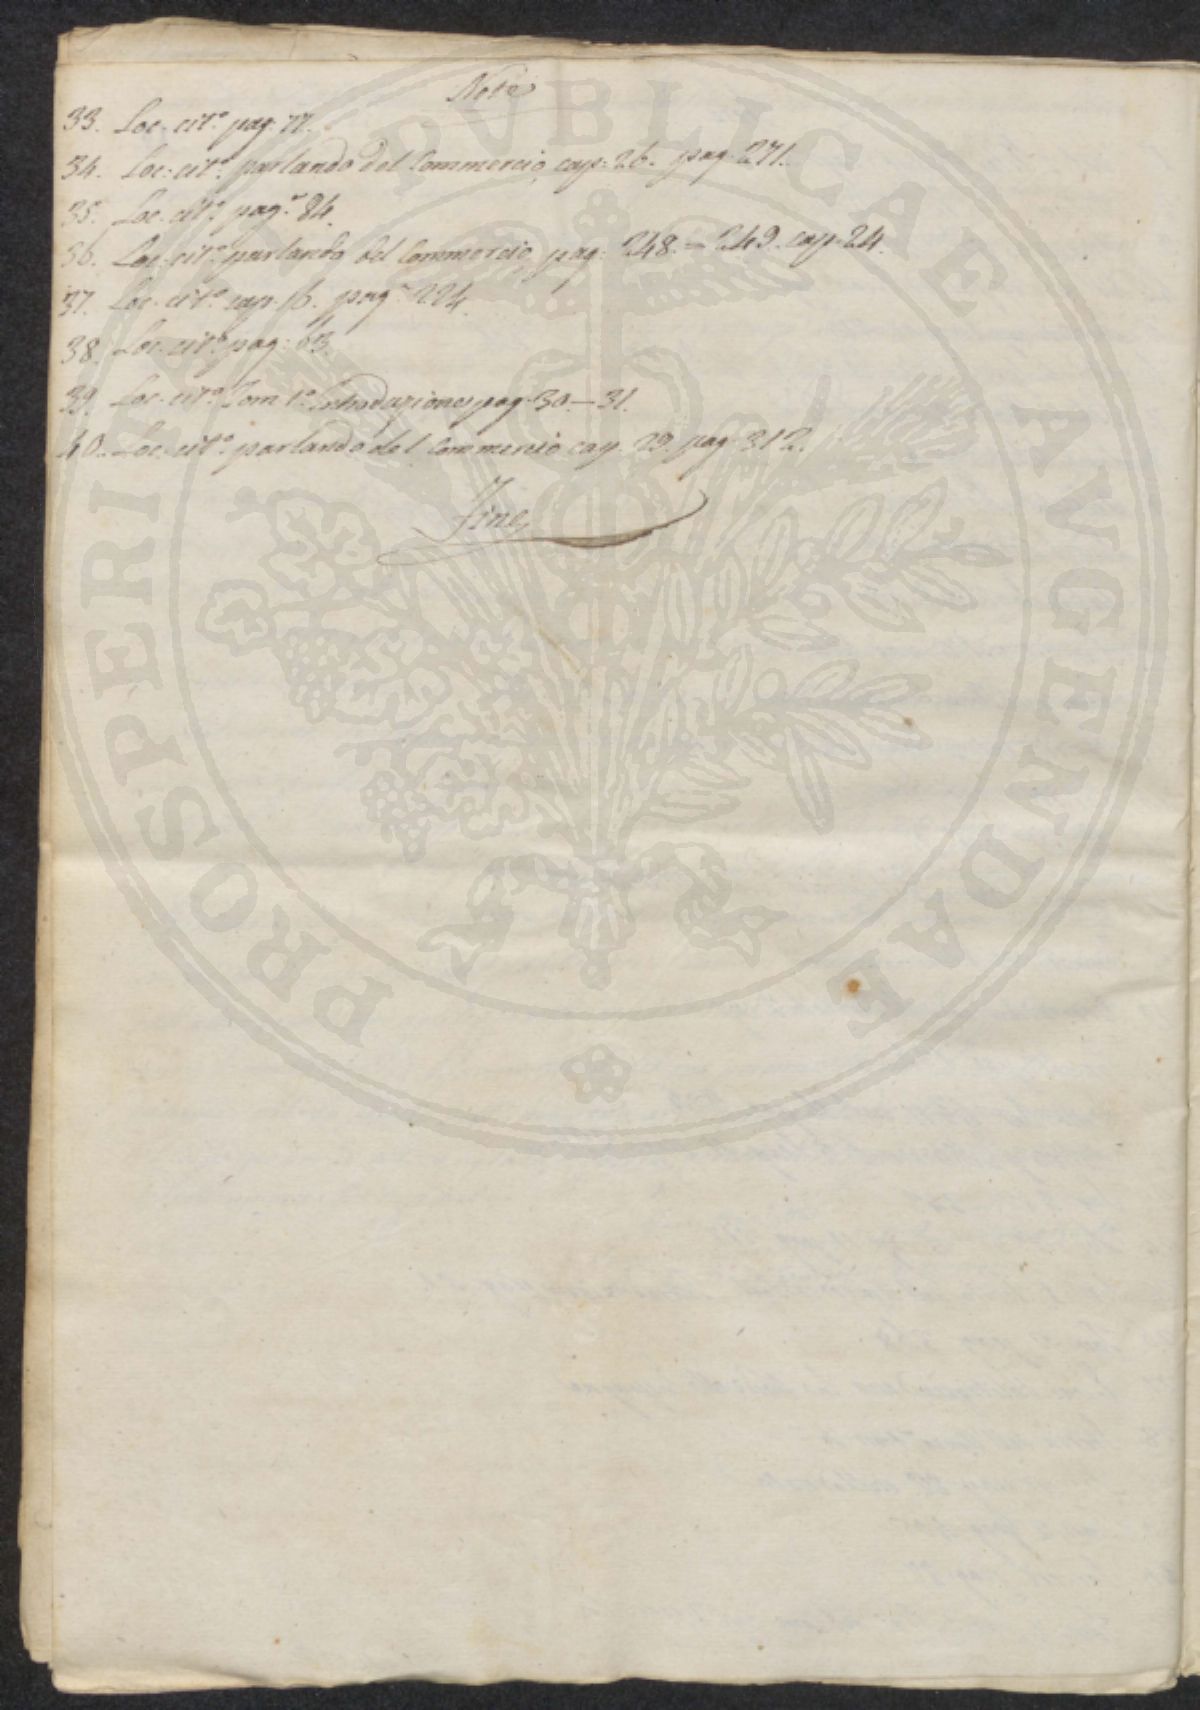 Note
33. Loc. cit.º pag. 77.
34. Loc. cit.º parlando del Commercio, cap. 26. pag. 271.
35. Loc. cit.º pag.ª 84.
36. Loc. cit.º parlando del Commercio, pag. 248.=249. cap. 24.
37. Loc. cit.º cap. 16. pag.ª 224.
38. Loc. cit.º pag. 63.
39. Loc. cit.º Tom. 1.º Introduzione, pag. 30.—31.
40. Loc. cit.º parlando del Commercio cap. 29. pag. 312.
Fine
PUBLICAE PROSPERITATI AVGENDAE